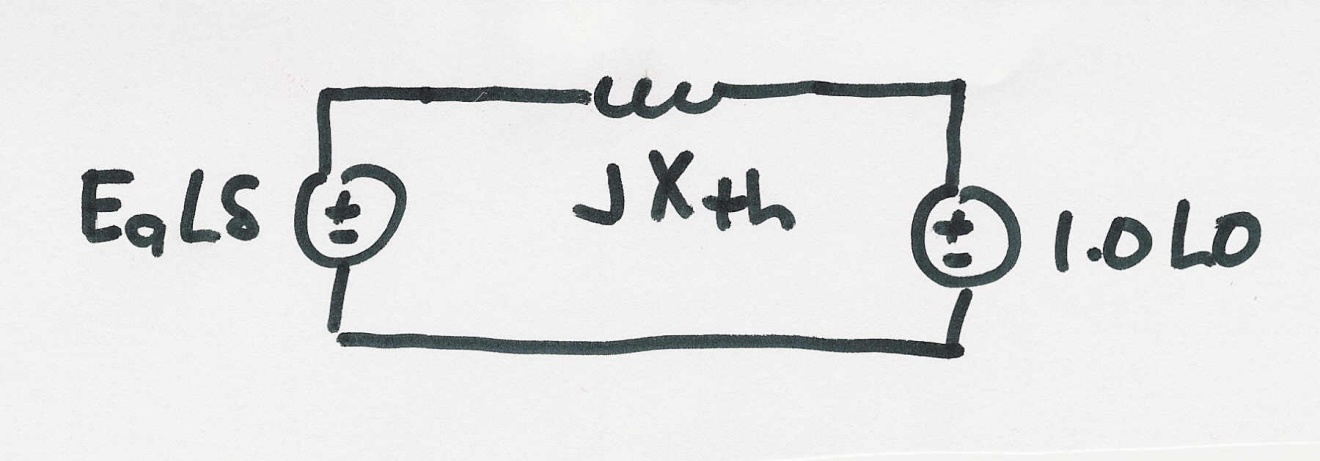 Eₐ∠δ
+
-
jXth
+
-
1.0∠0